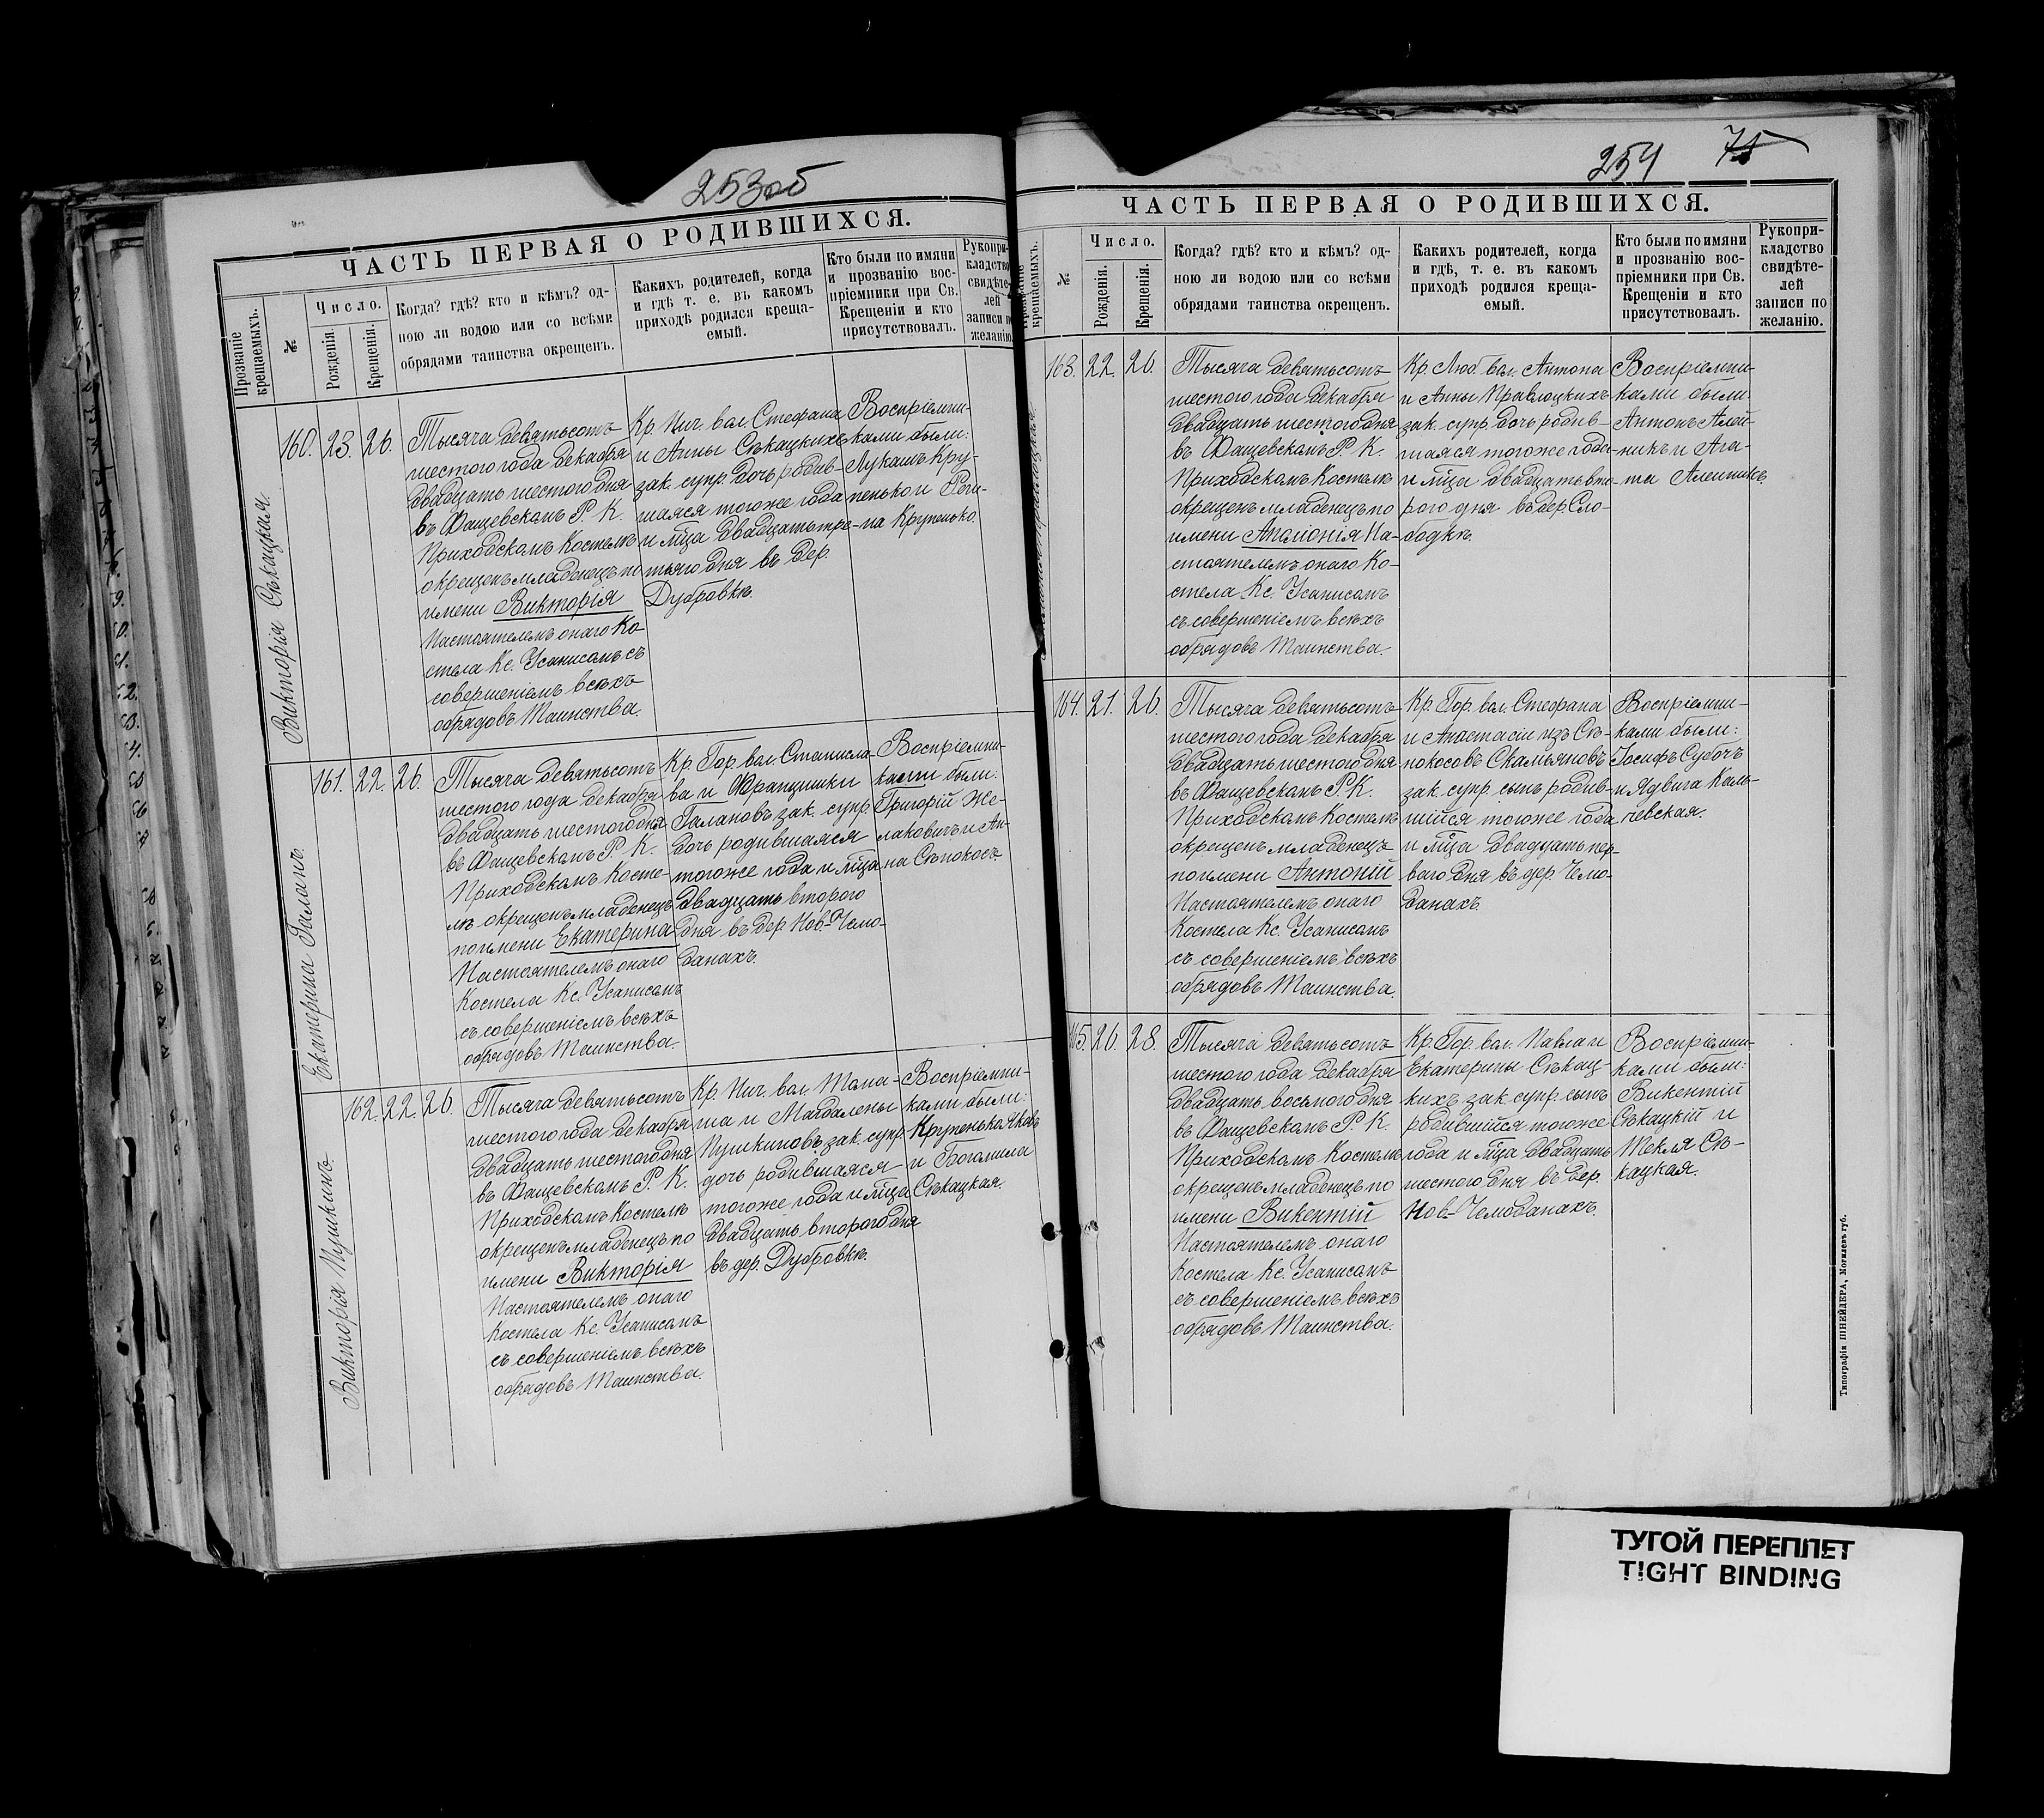 253об
ЧАСТЬ ПЕРВАЯ О РОДИВШИХСЯ.
Прозваніе крещаемыхъ.
№
Число.
Рожденія.
Крещенія.
Когда? гдѣ? кто и кѣмъ? од-
ною ли водою или со всѣми
обрядами таинства окрещенъ.
Какихъ родителей, когда
и гдѣ т. е. въ какомъ
приходѣ родился креща-
емый.
Кто были по имяни
и прозванію вос-
пріемники при Св.
Крещеніи и кто
присутствовалъ.
Рукопри-
кладство
свидѣте-
лей
записи по
желанію.
Викторія Сѣкацкая.
160. 23. 26.
Тысяча девятьсотъ
шестого года декабря
двадцать шестого дня
въ Фащевскомъ Р. К.
Приходскомъ Костелѣ
окрещенъ младенецъ по
имени Викторія
Настоятелемъ онаго Ко-
стела Кс. Усанисомъ съ
совершеніемъ всѣхъ
обрядовъ Таинства.
Кр. Нич. вол. Стефана
и Анны Сѣкацкихъ
зак. супр. дочь родив-
шаяся тогоже года
и м̃ца двадцать тре-
тьяго дня въ дер.
Дубровкѣ.
Воспріемни-
ками были:
Лукашъ Кру-
пенько и Реги-
на Крупенько.
Екатерина Галаганъ.
161. 22. 26.
Тысяча девятьсотъ
шестого года декабря
двадцать шестого дня
въ Фащевскомъ Р. К.
Приходскомъ Косте-
лѣ окрещенъ младенецъ
по имени Екатерина
Настоятелемъ онаго
Костела Кс. Усанисомъ
съ совершеніемъ всѣхъ
обрядовъ Таинства.
Кр. Гор. вол. Станисла-
ва и Францишки
Галановъ зак. супр.
дочь родившаяся
тогоже года и м̃ца
двадцать второго
дня въ дер. Нов.-Чемо-
данахъ.
Воспріемни-
ками были:
Григорій Же-
лаковичъ и Ан-
на Сѣнокосъ.
Викторія Пушкинъ.
162. 22. 26.
Тысяча девятьсотъ
шестого года декабря
двадцать шестого дня
въ Фащевскомъ Р. К.
Приходскомъ Костелѣ
окрещенъ младенецъ по
имени Викторія
Настоятелемъ онаго
Костела Кс. Усанисомъ
съ совершеніемъ всѣхъ
обрядовъ Таинства.
Кр. Нич. вол. Тома-
ша и Магдалены
Пушкиновъ зак. супр.
дочь родившаяся
тогоже года и м̃ца
двадцать второго дня
въ дер. Дубровкѣ.
Воспріемни-
ками были:
Крупенько Яковъ
и Богомила
Сѣкацкая.
254 75
ЧАСТЬ ПЕРВАЯ О РОДИВШИХСЯ.
крещаемыхъ.
№
Число.
Рожденія.
Крещенія.
Когда? гдѣ? кто и кѣмъ? од-
ною ли водою или со всѣми
обрядами таинства окрещенъ.
Какихъ родителей, когда
и гдѣ, т. е. въ какомъ
приходѣ родился креща-
емый.
Кто были по имяни
и прозванію вос-
пріемники при Св.
Крещеніи и кто
присутствовалъ.
Рукопри-
кладство
свидѣте-
лей
записи по
желанію.
163. 22. 26.
Тысяча девятьсотъ
шестого года декабря
двадцать шестого дня
въ Фащевскомъ Р. К.
Приходскомъ Костелѣ
окрещенъ младенецъ по
имени Аполонія На-
стоятелемъ онаго Ко-
стела Кс. Усанисомъ
съ совершеніемъ всѣхъ
обрядовъ Таинства.
Кр. Люб. вол. Антона
и Анны
зак. супр. дочь родив-
шаяся тогоже года
и м̃ца двадцать вто-
рого дня въ дер. Сло-
бодкѣ.
Воспріемни-
ками были:
Антонъ Алей-
никъ и Ага-
та
164. 21. 26.
Тысяча девятьсотъ
шестого года декабря
двадцать шестого дня
въ Фащевскомъ Р. К.
Приходскомъ Костелѣ
окрещенъ младенецъ
по имени Антоній
Настоятелемъ онаго
Костела Кс. Усанисомъ
съ совершеніемъ всѣхъ
обрядовъ Таинства.
Кр. Гор. вол. Стефана
и Анастасіи изъ Сѣ-
нокосовъ Скамьяновъ
зак. супр. сынъ родив-
шійся тогоже года
и м̃ца двадцать пер-
ваго дня въ дер. Чемо-
данахъ.
Воспріемни-
ками были:
Іосифъ Субочъ
и Ядвига Каль-
чевская.
165. 26. 28.
Тысяча девятьсотъ
шестого года декабря
двадцать восьмого дня
въ Фащевскомъ Р. К.
Приходскомъ Костелѣ
окрещенъ младенецъ по
имени Викентій
Настоятелемъ онаго
Костела Кс. Усанисомъ
съ совершеніемъ всѣхъ
обрядовъ Таинства.
Кр. Гор. вол. Павла и
Екатерины Сѣкац-
кихъ зак. супр. сынъ
родившійся тогоже
года и м̃ца двадцать
шестого дня въ дер.
Нов.-Чемоданахъ.
Воспріемни-
ками были:
Викентій
Сѣкацкій и
Текля Сѣ-
кацкая.
Типографія ШНЕЙДЕРА, Могилевъ губ.
ТУГОЙ ПЕРЕПЛЕТ
TIGHT BINDING